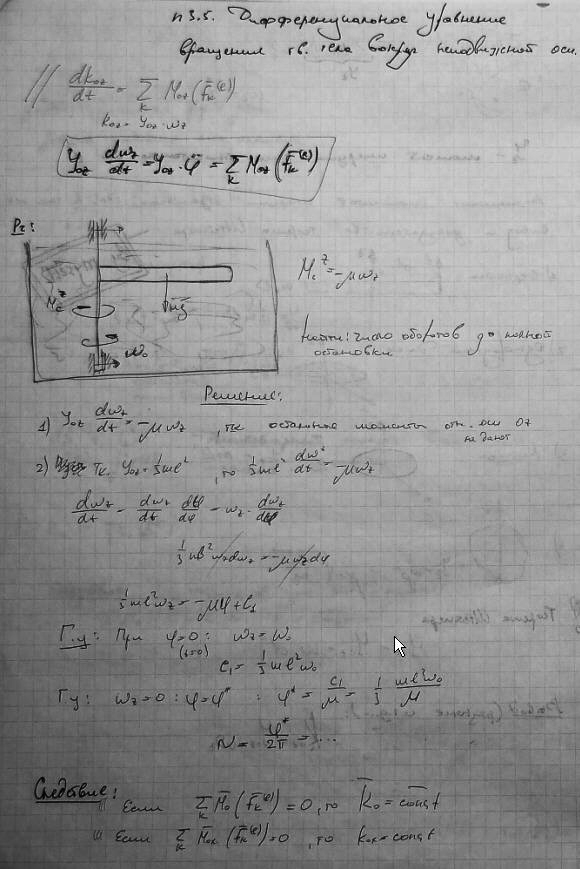 п 3.5. Дифференциальное уравнение
вращения тв. тела вокруг неподвижной оси.
// dk_oz/dt = Σ_k M_oz(f̄_k^(e))
k_oz = J_oz · ω_z
J_oz dω_z/dt = J_oz · φ̈ = Σ_k M_oz(f̄_k^(e))
Pr:
M_c^z
mḡ
ω₀
M_c^z = -μω_z
Найти: число оборотов до полной
остановки.
Решение:
1) J_oz dω_z/dt = -μω_z , тк остальные моменты отн. оси Oz
не дают
2) Тк. J_oz = 1/3 ml² , то 1/3 ml² dω_z/dt = -μω_z
dω_z/dt = dω_z/dt dφ/dφ = ω_z · dω_z/dφ
1/3 ml² ω_z dω_z = -μω_z dφ
1/3 ml² ω_z = -μφ + C₁
Г.у: При φ=0 : ω_z = ω₀
(t=0)
C₁ = 1/3 ml² ω₀
Гу: ω_z = 0 : φ = φ* : φ* = C₁/μ = 1/3 ml²ω₀/μ
N = φ*/2π = ...
Следствие:
Если Σ_k M̄_o(f̄_k^(e)) = 0, то k̄_o = const
Если Σ_k M̄_ox(f̄_k^(e)) = 0 , то k_ox = const